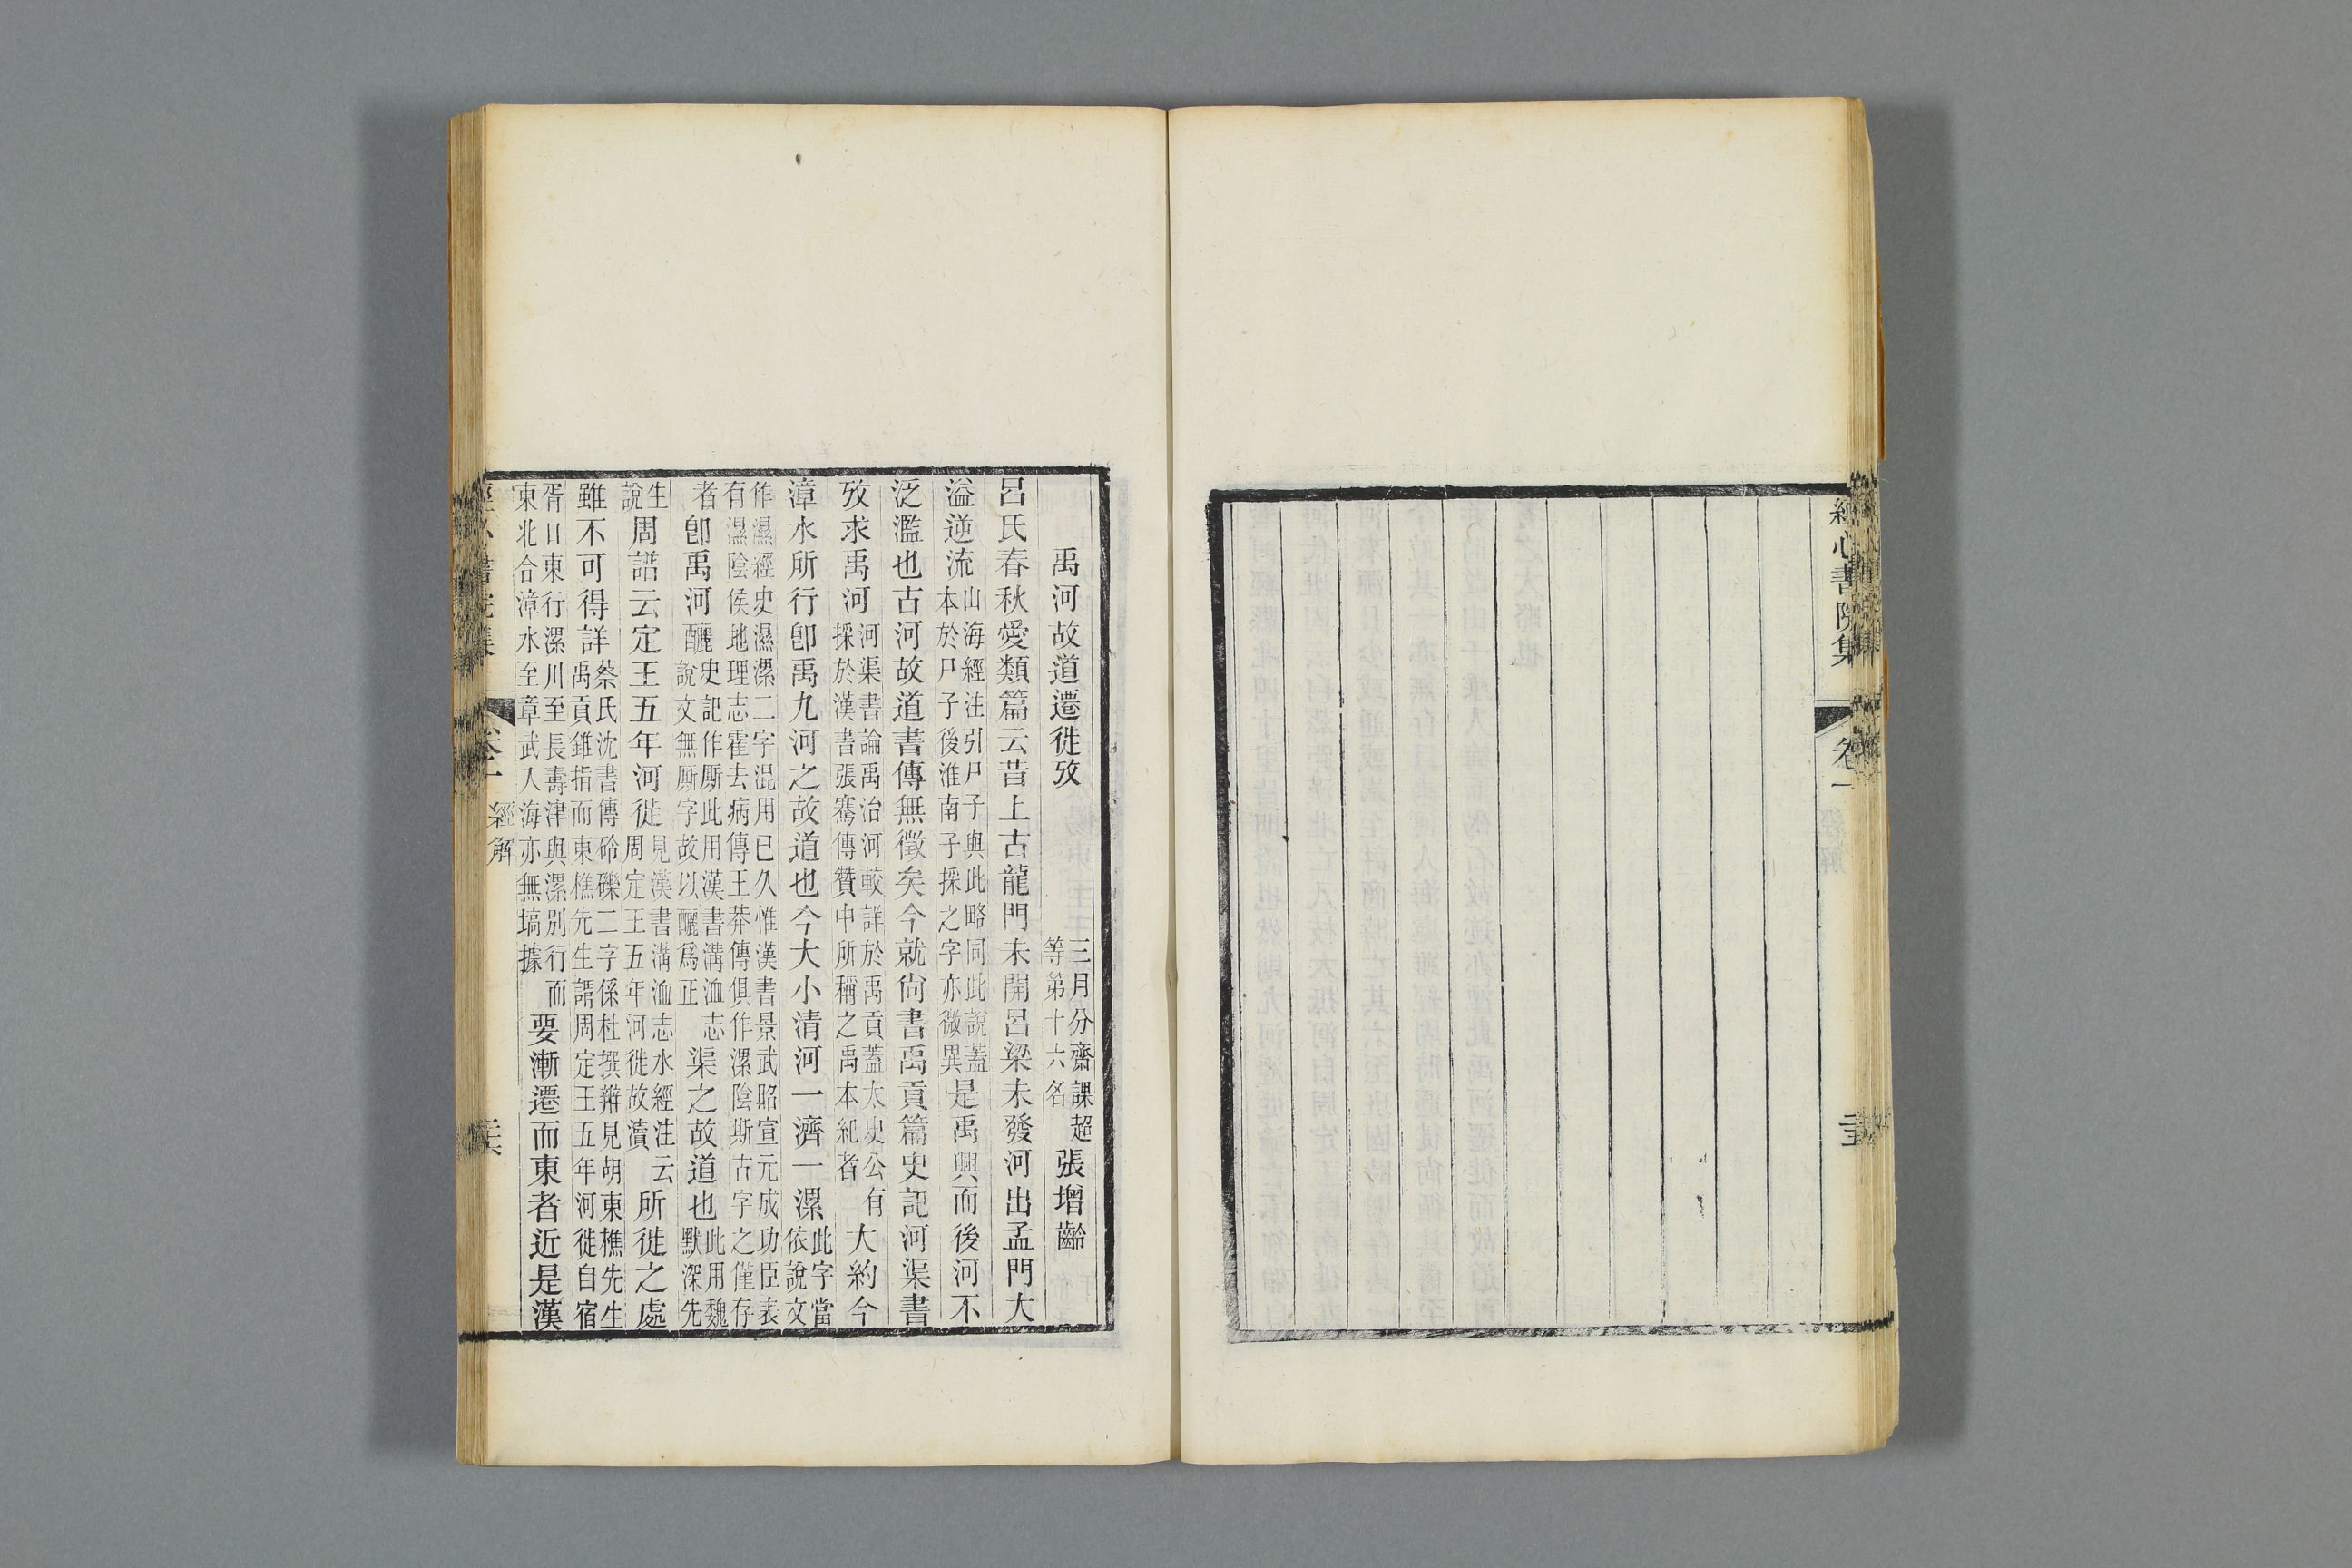 經心書院集 卷一
禹河故道遷徙攷 三月分齋課超等第十六名 張增齡
呂氏春秋愛類篇云昔上古龍門未開呂梁未發河出孟門大
溢逆流山海經注引尸子與此略同此說蓋本於尸子後淮南子採之字亦微異是禹興而後河不
泛濫也古河故道書傳無徵矣今就尙書禹貢篇史記河渠書
攷求禹河河渠書論禹治河較詳於禹貢蓋太史公有採於漢書張騫傳贊中所稱之禹本紀者大約今
漳水所行卽禹九河之故道也今大小清河一濟一漯此字當依說文
作濕經史濕漯二字混用已久惟漢書景武昭宣元成功臣表有濕陰侯地理志霍去病傳王莽傳俱作漯陰斯古字之僅存
者卽禹河釃史記作厮此用漢書溝洫志說文無厮字故以釃爲正渠之故道也此用魏默深先
生說周譜云定王五年河徙見漢書溝洫志水經注云周定王五年河徙故瀆所徙之處
雖不可得詳蔡氏沈書傳砱礫二字係杜撰辯見胡東樵先生禹貢錐指而東樵先生謂周定王五年河徙自宿
胥口東行漯川至長壽津與漯別行而東北合漳水至章武入海亦無塙據要漸遷而東者近是漢
經解